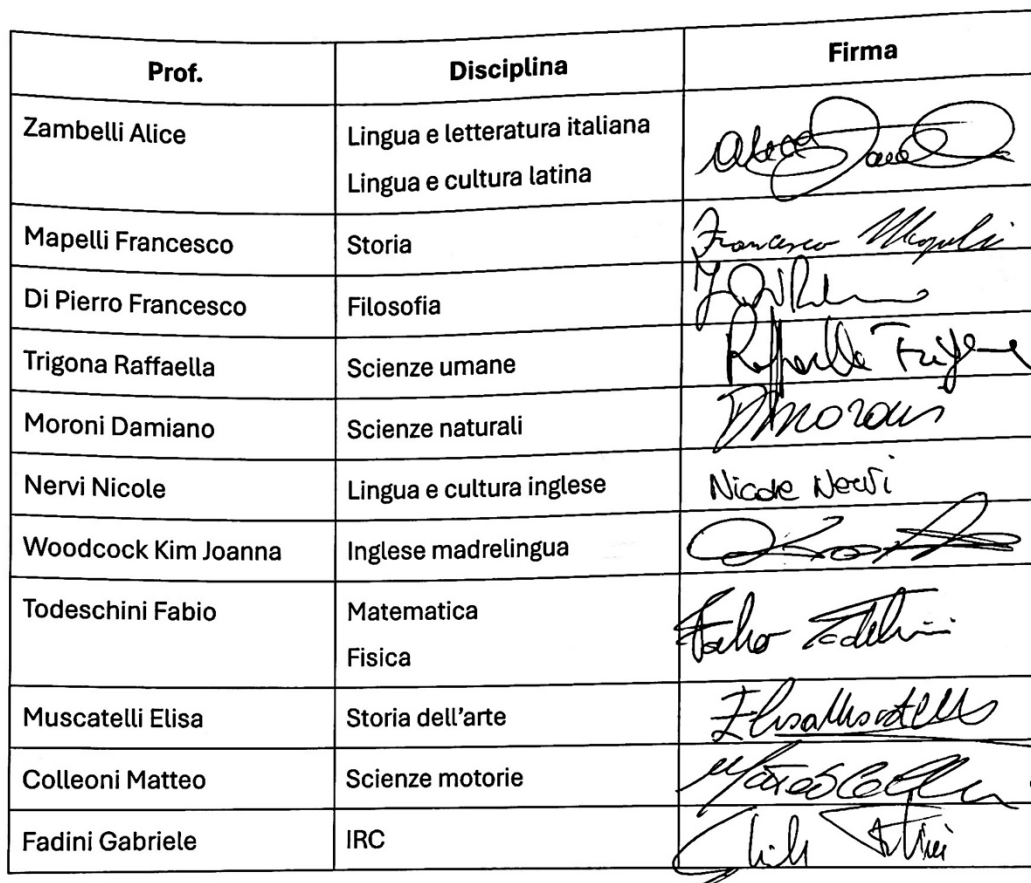 Prof. Disciplina Firma
Zambelli Alice Lingua e letteratura italiana
Lingua e cultura latina
Mapelli Francesco Storia Francesco Mapelli
Di Pierro Francesco Filosofia
Trigona Raffaella Scienze umane Raffaella Trigona
Moroni Damiano Scienze naturali DMoroni
Nervi Nicole Lingua e cultura inglese Nicole Nervi
Woodcock Kim Joanna Inglese madrelingua
Todeschini Fabio Matematica Fabio Todeschini
Fisica
Muscatelli Elisa Storia dell'arte Elisa Muscatelli
Colleoni Matteo Scienze motorie Matteo Colleoni
Fadini Gabriele IRC